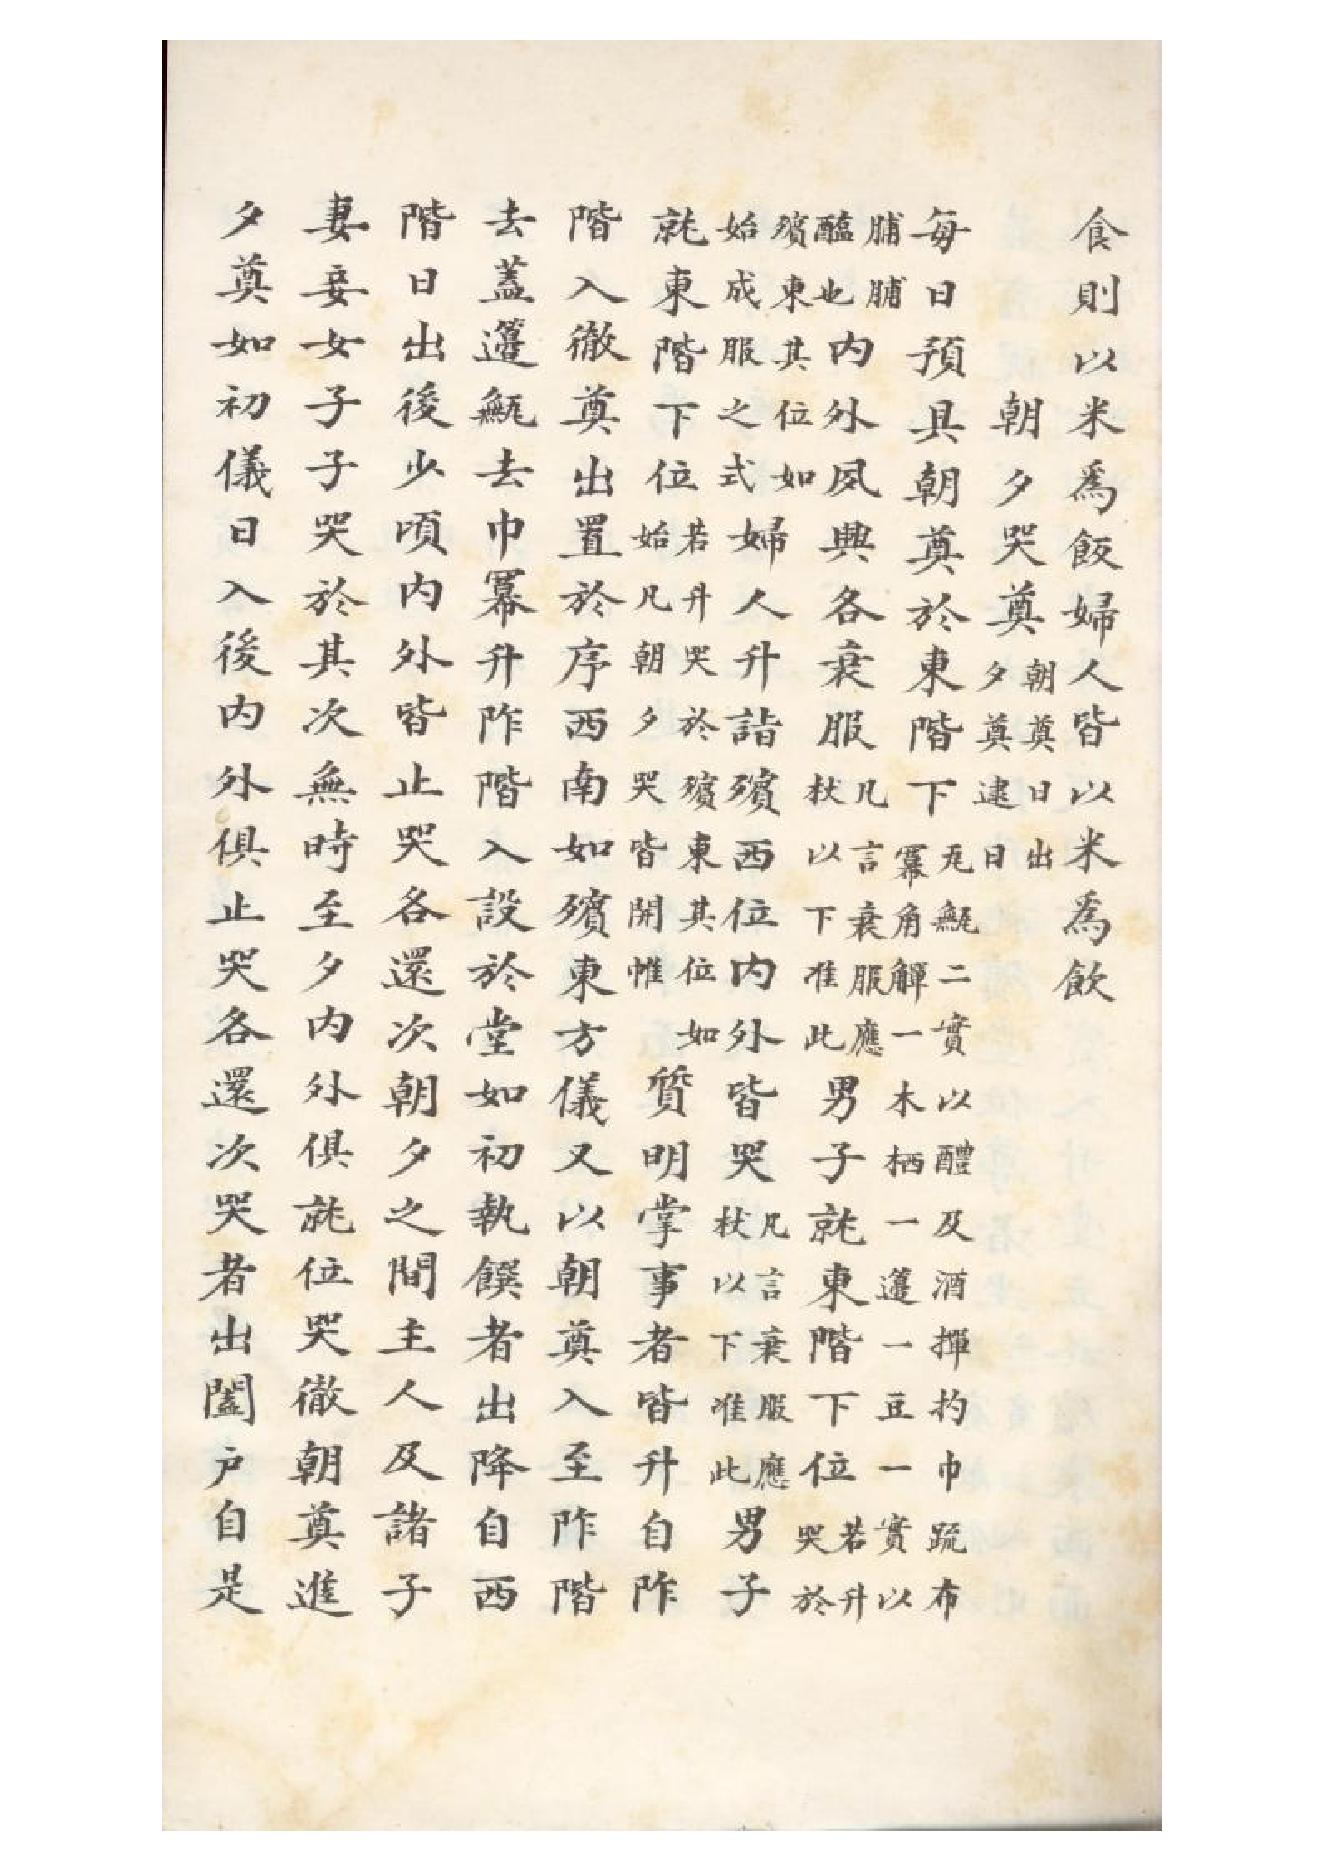 食則以米爲飯婦人皆以米爲飲
朝夕哭奠朝奠日出夕奠逮日
每日預具朝奠於東階下瓦甒二實以醴及酒揮杓巾疏布冪角觶一木栖一籩一豆一實以
脯脯醢也内外夙興各衰服凡言衰服應杖以下准此男子就東階下位若升哭於
殯東其位如始成服之式婦人升詣殯西位内外皆哭凡言衰服應杖以下准此男子
就東階下位若升哭於殯東其位如始凡朝夕哭皆開帷質明掌事者皆升自阼
階入徹奠出置於序西南如殯東方儀又以朝奠入至阼階
去蓋籩甒去巾冪升阼階入設於堂如初執饌者出降自西
階日出後少頃内外皆止哭各還次朝夕之間主人及諸子
妻妾女子子哭於其次無時至夕内外俱就位哭徹朝奠進
夕奠如初儀日入後内外俱止哭各還次哭者出闔戶自是